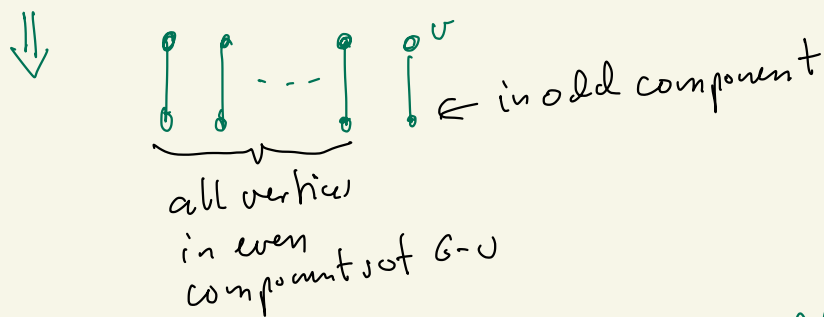 ⇓
v
← in odd component
- - -
all vertices
in even
components of G-v